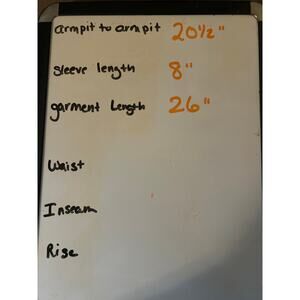 armpit to armpit 20½"
Sleeve length 8"
garment Length 26"
Waist
Inseam
Rise